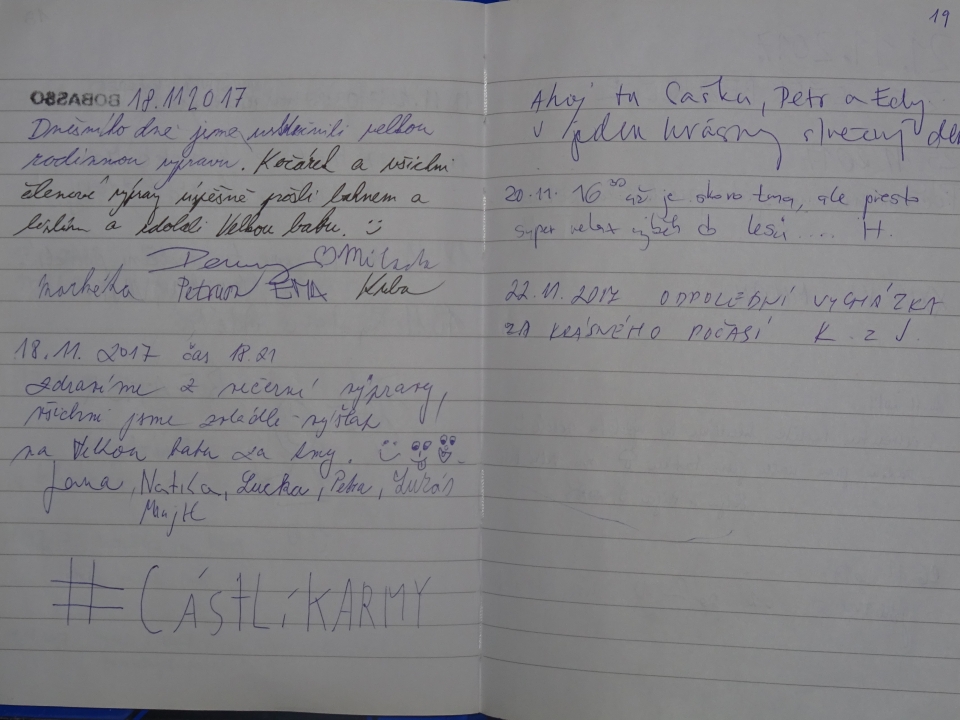 BOBASSO 18.11 2017
Dnešního dne jsme uskutečnili velkou
rodinnou výpravu. Kočárek a všichni
členové výpravy úspěšně prošli bahnem a
a zdolali Velkou babu.
Milada
Markéta Petrun EMA Kuba
18.11. 2017 čas 18.21
zdravíme z večerní výpravy,
všichni jsme zvládli výšlap
na Velkou babu za tmy.
Jana, Natika, Lucka, Petra, Lukáš
#CÁSTLíKARMY
19
Ahoj tu Cašku, Petr a Edy
v jeden krásný slunečný den
20.11. 16³⁰ už je skoro tma, ale přesto
super relax výběh do lesů.... H.
22.11.2017 ODPOLEDNÍ VYCHÁZKA
ZA KRÁSNÉHO POČASÍ K. z J.